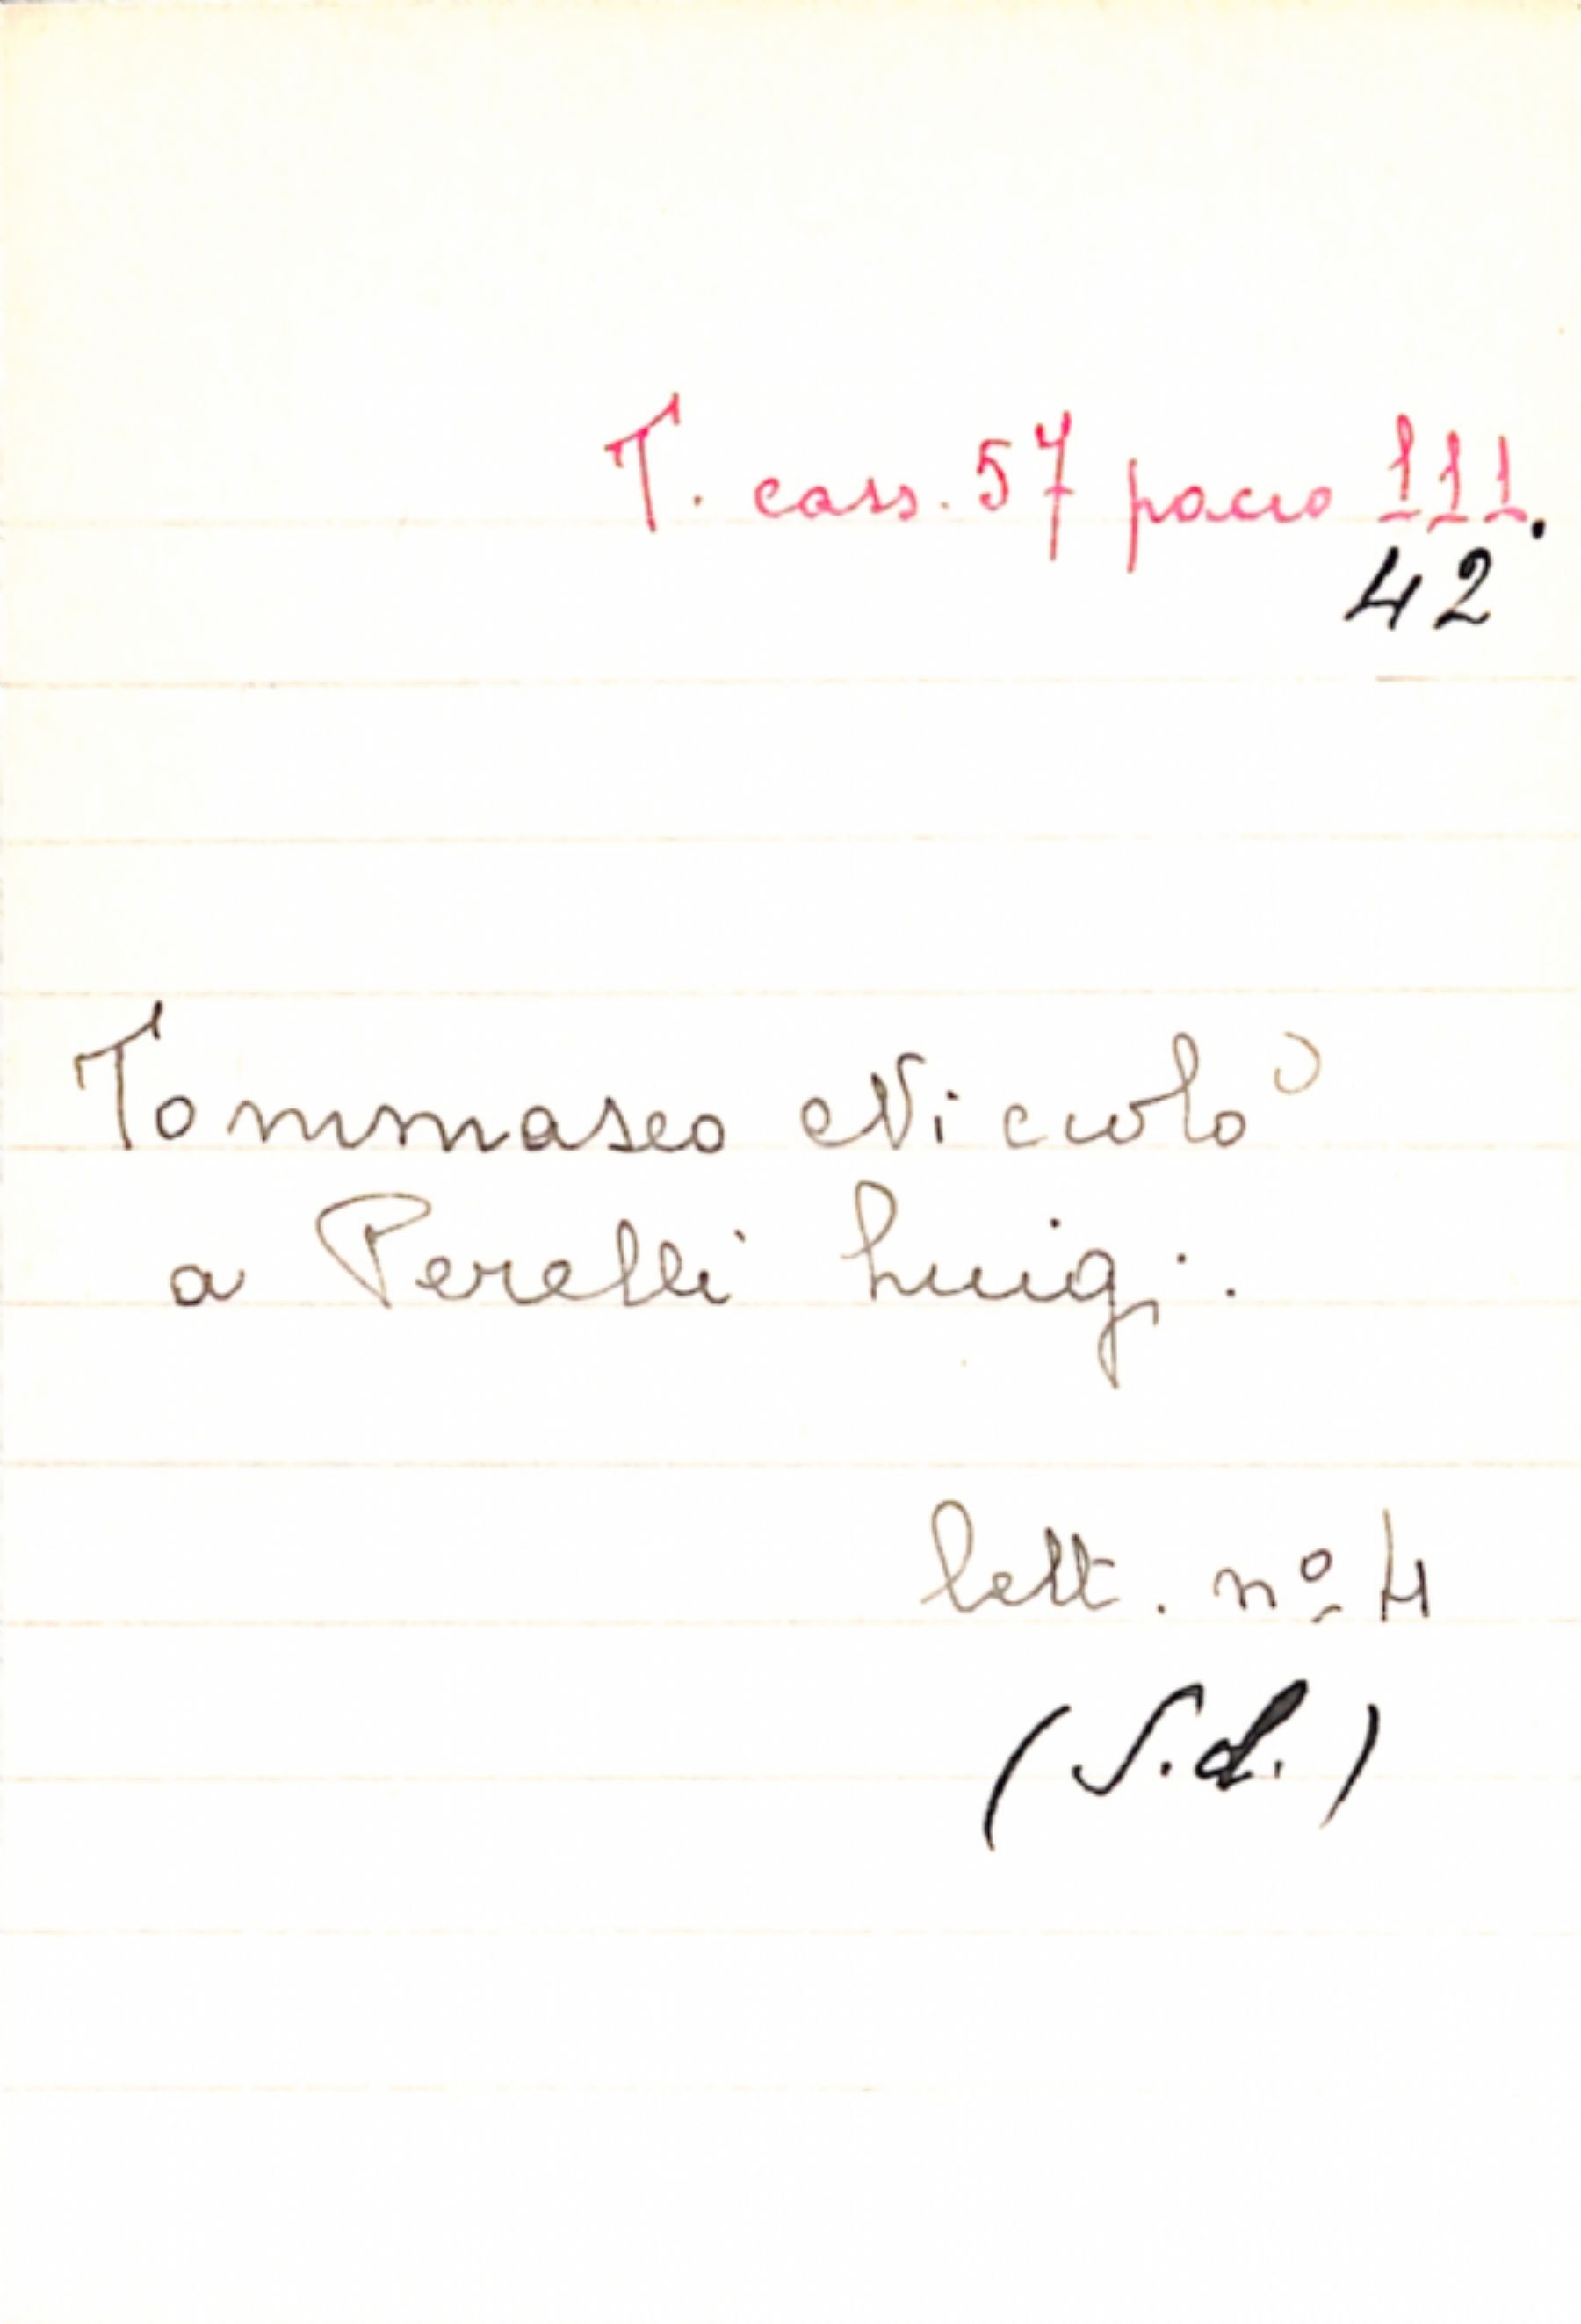 T. cass. 57 pacco 111.
42
Tommaseo Niccolò
a Perelli Luigi.
lett. nº 4
(S.d.)